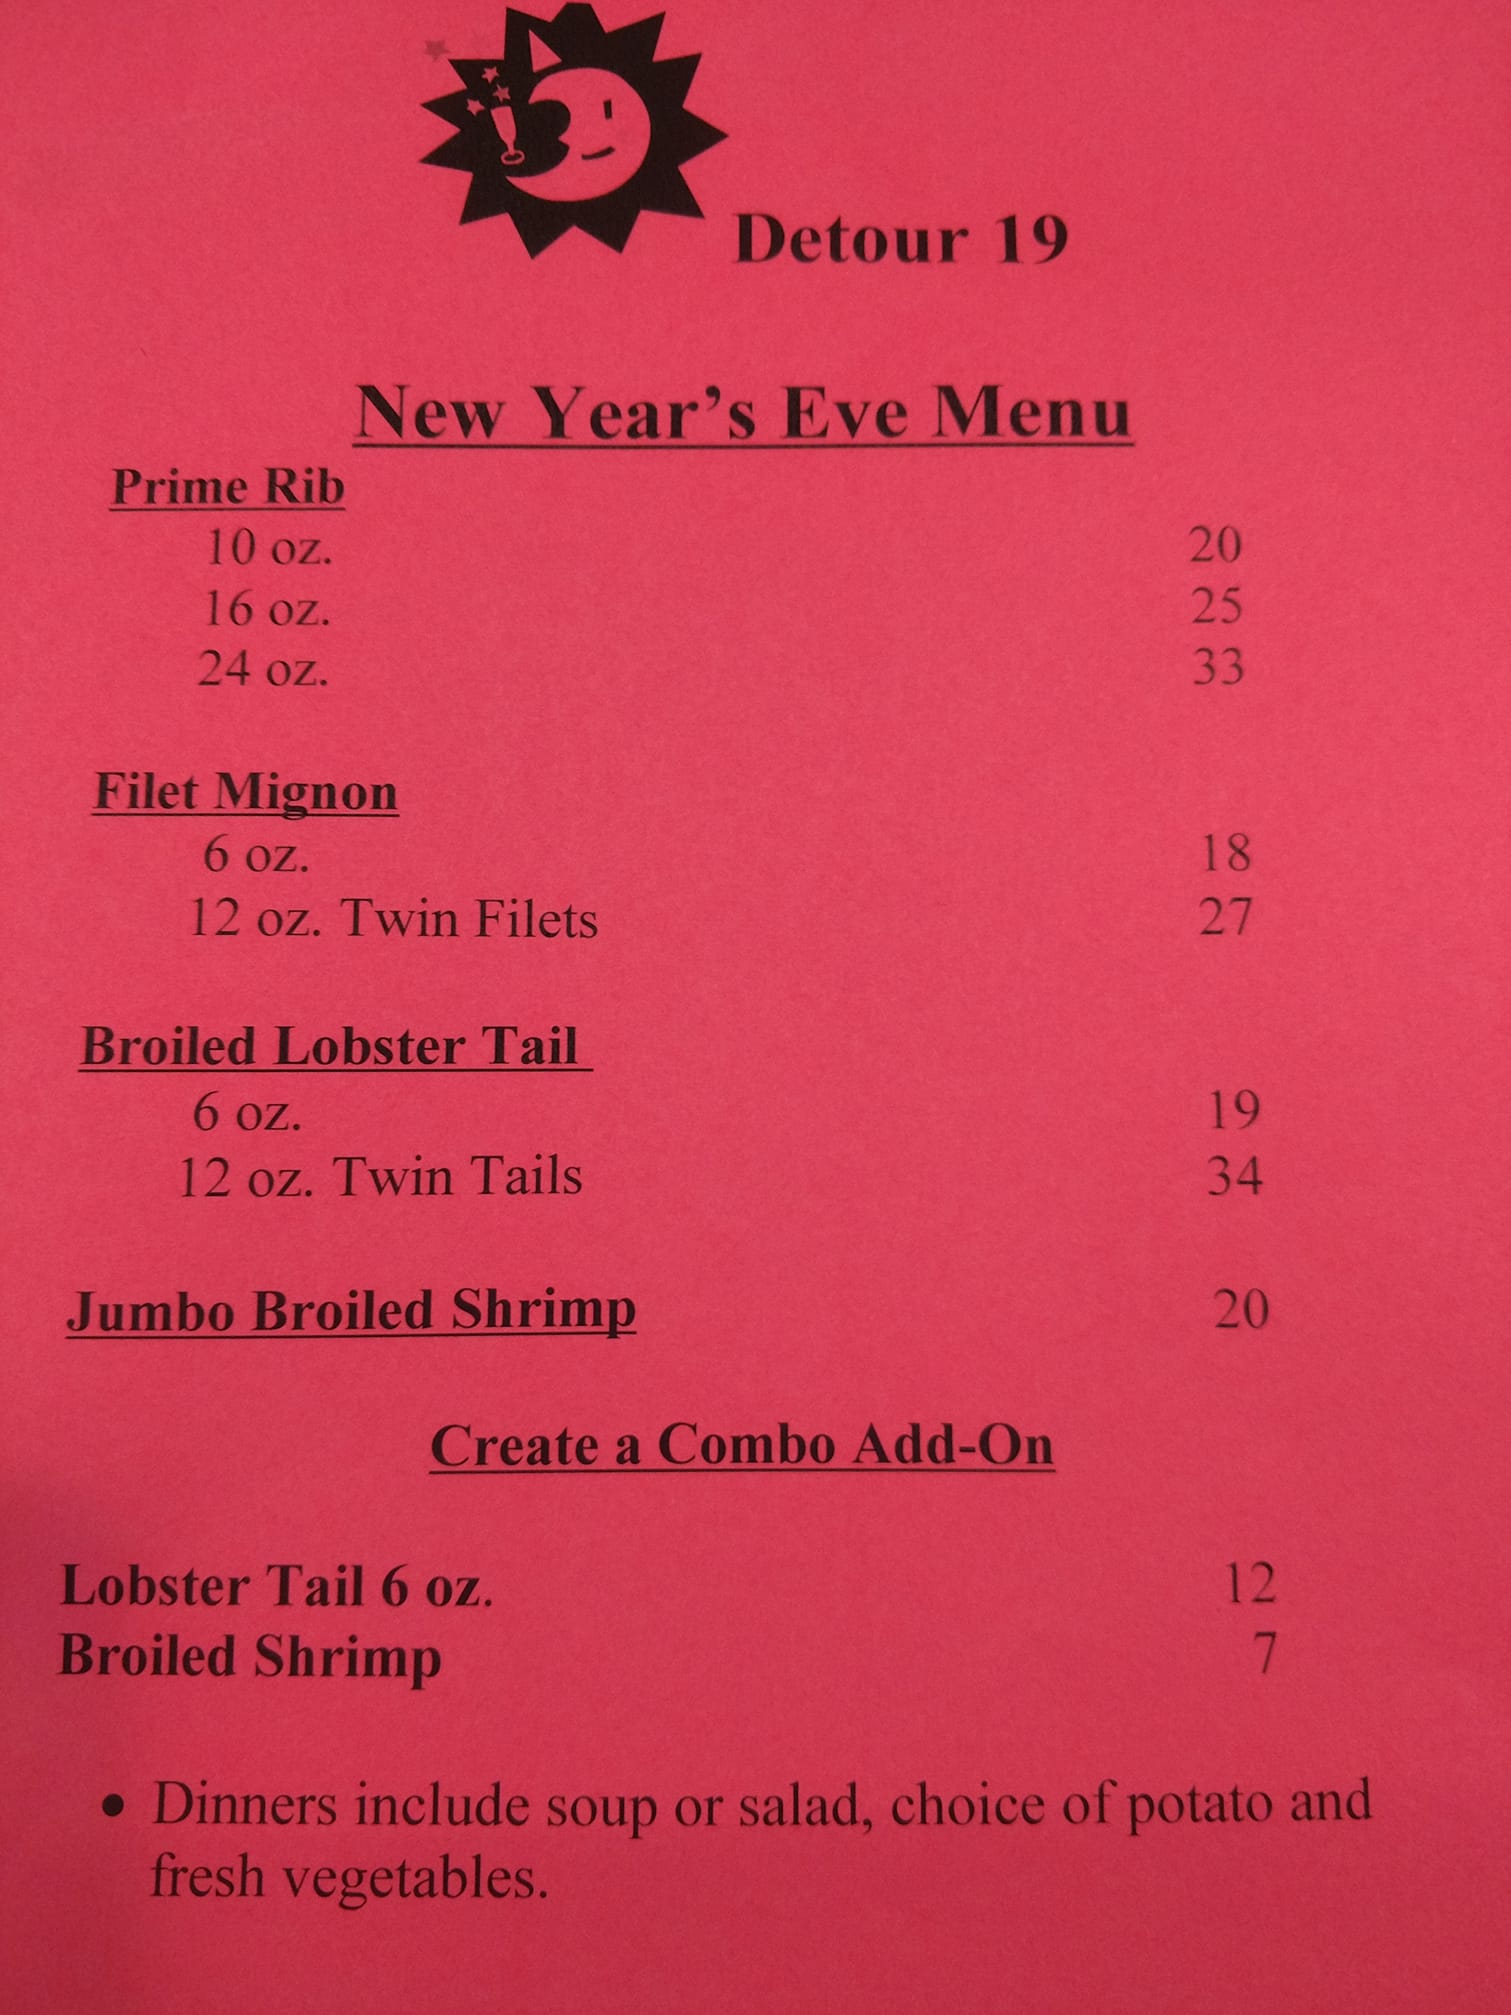 Detour 19
New Year's Eve Menu
Prime Rib
10 oz. 20
16 oz. 25
24 oz. 33
Filet Mignon
6 oz. 18
12 oz. Twin Filets 27
Broiled Lobster Tail
6 oz. 19
12 oz. Twin Tails 34
Jumbo Broiled Shrimp 20
Create a Combo Add-On
Lobster Tail 6 oz. 12
Broiled Shrimp 7
• Dinners include soup or salad, choice of potato and
fresh vegetables.